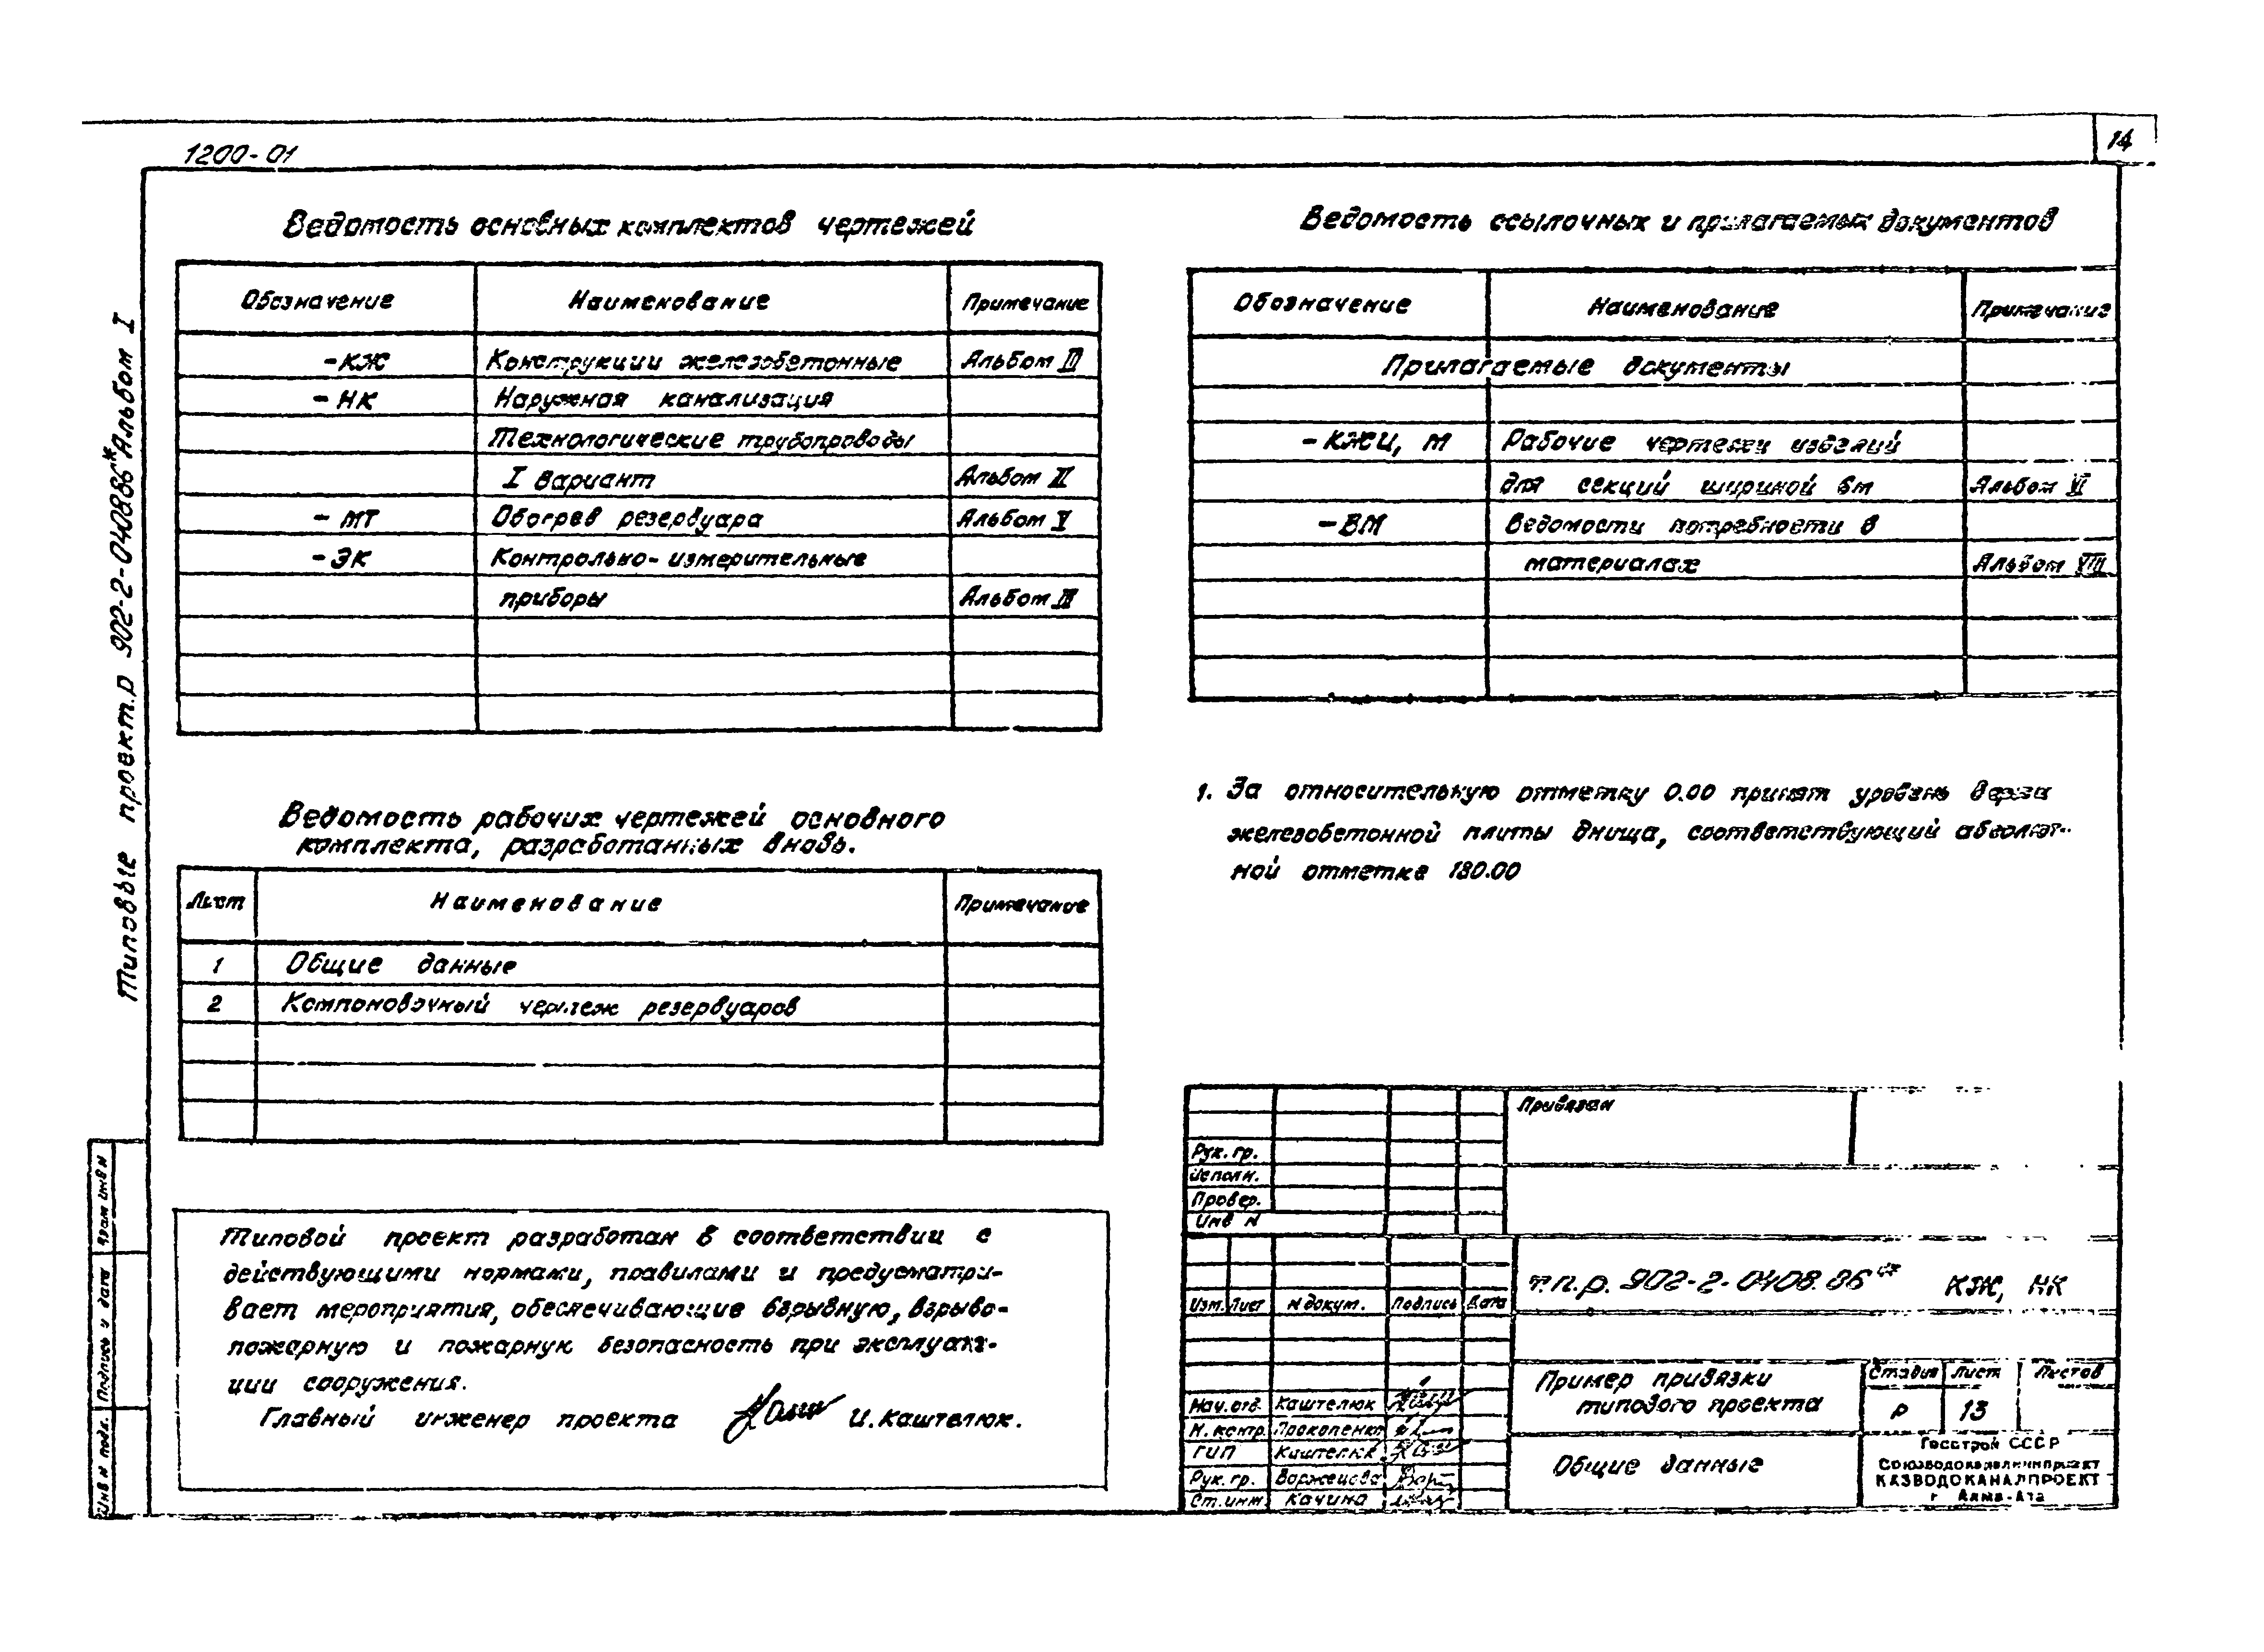 1200-01
14
Типовые проект.р 902-2-0408.86* Альбом I
Ведомость основных комплектов чертежей
Обозначение Наименование Примечание
-КЖ Конструкции железобетонные Альбом III
-НК Наружная канализация
Технологические трубопроводы
I вариант Альбом II
-МТ Обогрев резервуара Альбом V
-ЭК Контрольно-измерительные
приборы Альбом
Ведомость рабочих чертежей основного
комплекта, разработанных вновь.
Лист Наименование Примечание
1 Общие данные
2 Компоновочный чертеж резервуаров
Типовой проект разработан в соответствии с
действующими нормами, правилами и предусматри-
вает мероприятия, обеспечивающие взрывную, взрыво-
пожарную и пожарную безопасность при эксплуата-
ции сооружения.
Главный инженер проекта И. Каштелюк.
Ведомость ссылочных и прилагаемых документов
Обозначение Наименование Примечание
Прилагаемые документы
-КЖИ, М Рабочие чертежи изделий
для секций шириной 6м Альбом VI
-ВМ Ведомости потребности в
материалах Альбом VIII
1. За относительную отметку 0.00 принят уровень верха
железобетонной плиты днища, соответствующий абсолют-
ной отметке 180.00
Привязан
Рук. гр.
Исполн.
Провер.
Инв N
Изм. Лист N докум. Подпись Дата
т.п.р. 902-2-0408.86* КЖ, НК
Нач. отд. Каштелюк
Н. контр. Прокопенко
ГИП Каштелюк
Рук. гр.
Ст. инж. Качина
Пример привязки
типового проекта
Стадия Лист Листов
Р 13
Общие данные
Госстрой СССР
Союзводоканалниипроект
КАЗВОДОКАНАЛПРОЕКТ
г Алма-Ата
Взам инв N
Подпись и дата
Инв N подл.